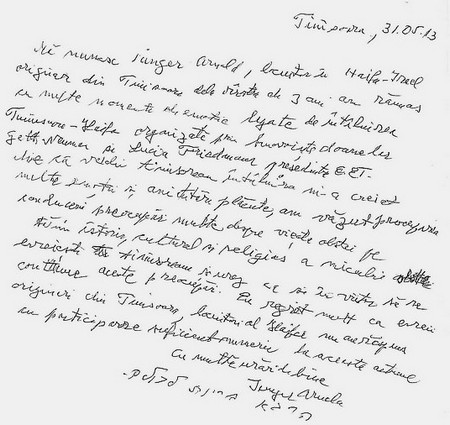 Timișoara, 31.05.13
Mă numesc Iunger Arnold, locuitor în Haifa-Israel
originar din Timișoara dela vârsta de 3 ani am rămas
cu multe momente emotive legate de întâlnirea
Timișoara - Haifa organizată prin bunăvoința doamnelor
Getta Neuman și Lucia Friedmann președinta C.E.T.
că vechi timișorean întâlnirea mi-a creiat
multe emoții și amintiri plăcute, am văzut
preocupări multe despre viața obștei pe
tărâm istoric, cultural și religios a micului
evreiești timișorene și urez ca și în viitor să se
continue aceste preocupări. Eu regret mult ca evreii
originari din Timișoara, locuitori al Haifei nu au
cu participare suficient numeric la aceste acțiuni
Cu multe urări de bine
Iunger Arnold